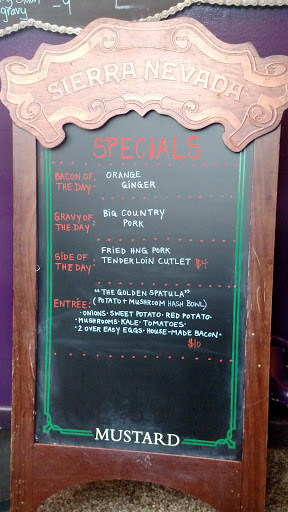 gravy - 9
SIERRA NEVADA
SPECIALS
BACON OF THE DAY: ORANGE GINGER
GRAVY OF THE DAY: BIG COUNTRY PORK
SIDE OF THE DAY: FRIED HNG PORK TENDERLOIN CUTLET $4
ENTRÉE: "THE GOLDEN SPATULA"
(POTATO + MUSHROOM HASH BOWL)
· ONIONS · SWEET POTATO · RED POTATO ·
· MUSHROOMS · KALE · TOMATOES ·
· 2 OVER EASY EGGS · HOUSE-MADE BACON ·
$10
MUSTARD